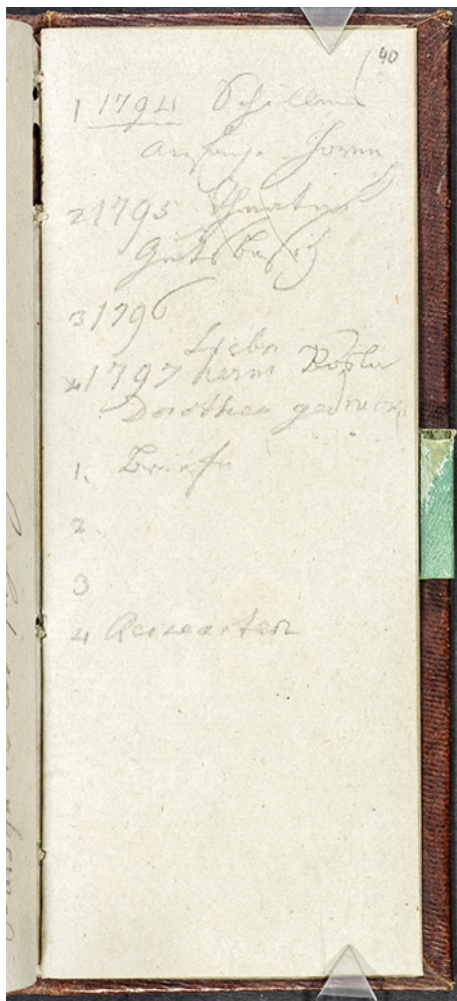 40
1 1794 Schiller
Anfangs Horen
2 1795 Theater
Gutsbesitz
3 1796
Liebe
4 1797 herm
Dorothea gedruckt
1. Briefe
2
3
4 Reiseacten